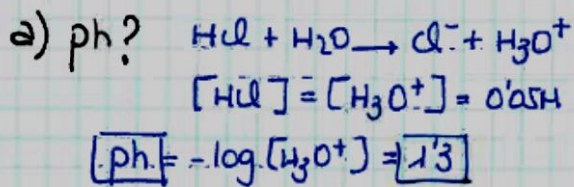 a) ph? HCl + H2O → Cl⁻ + H3O⁺
[HCl] = [H3O⁺] = 0'05M
ph = -log [H3O⁺] = 1'3